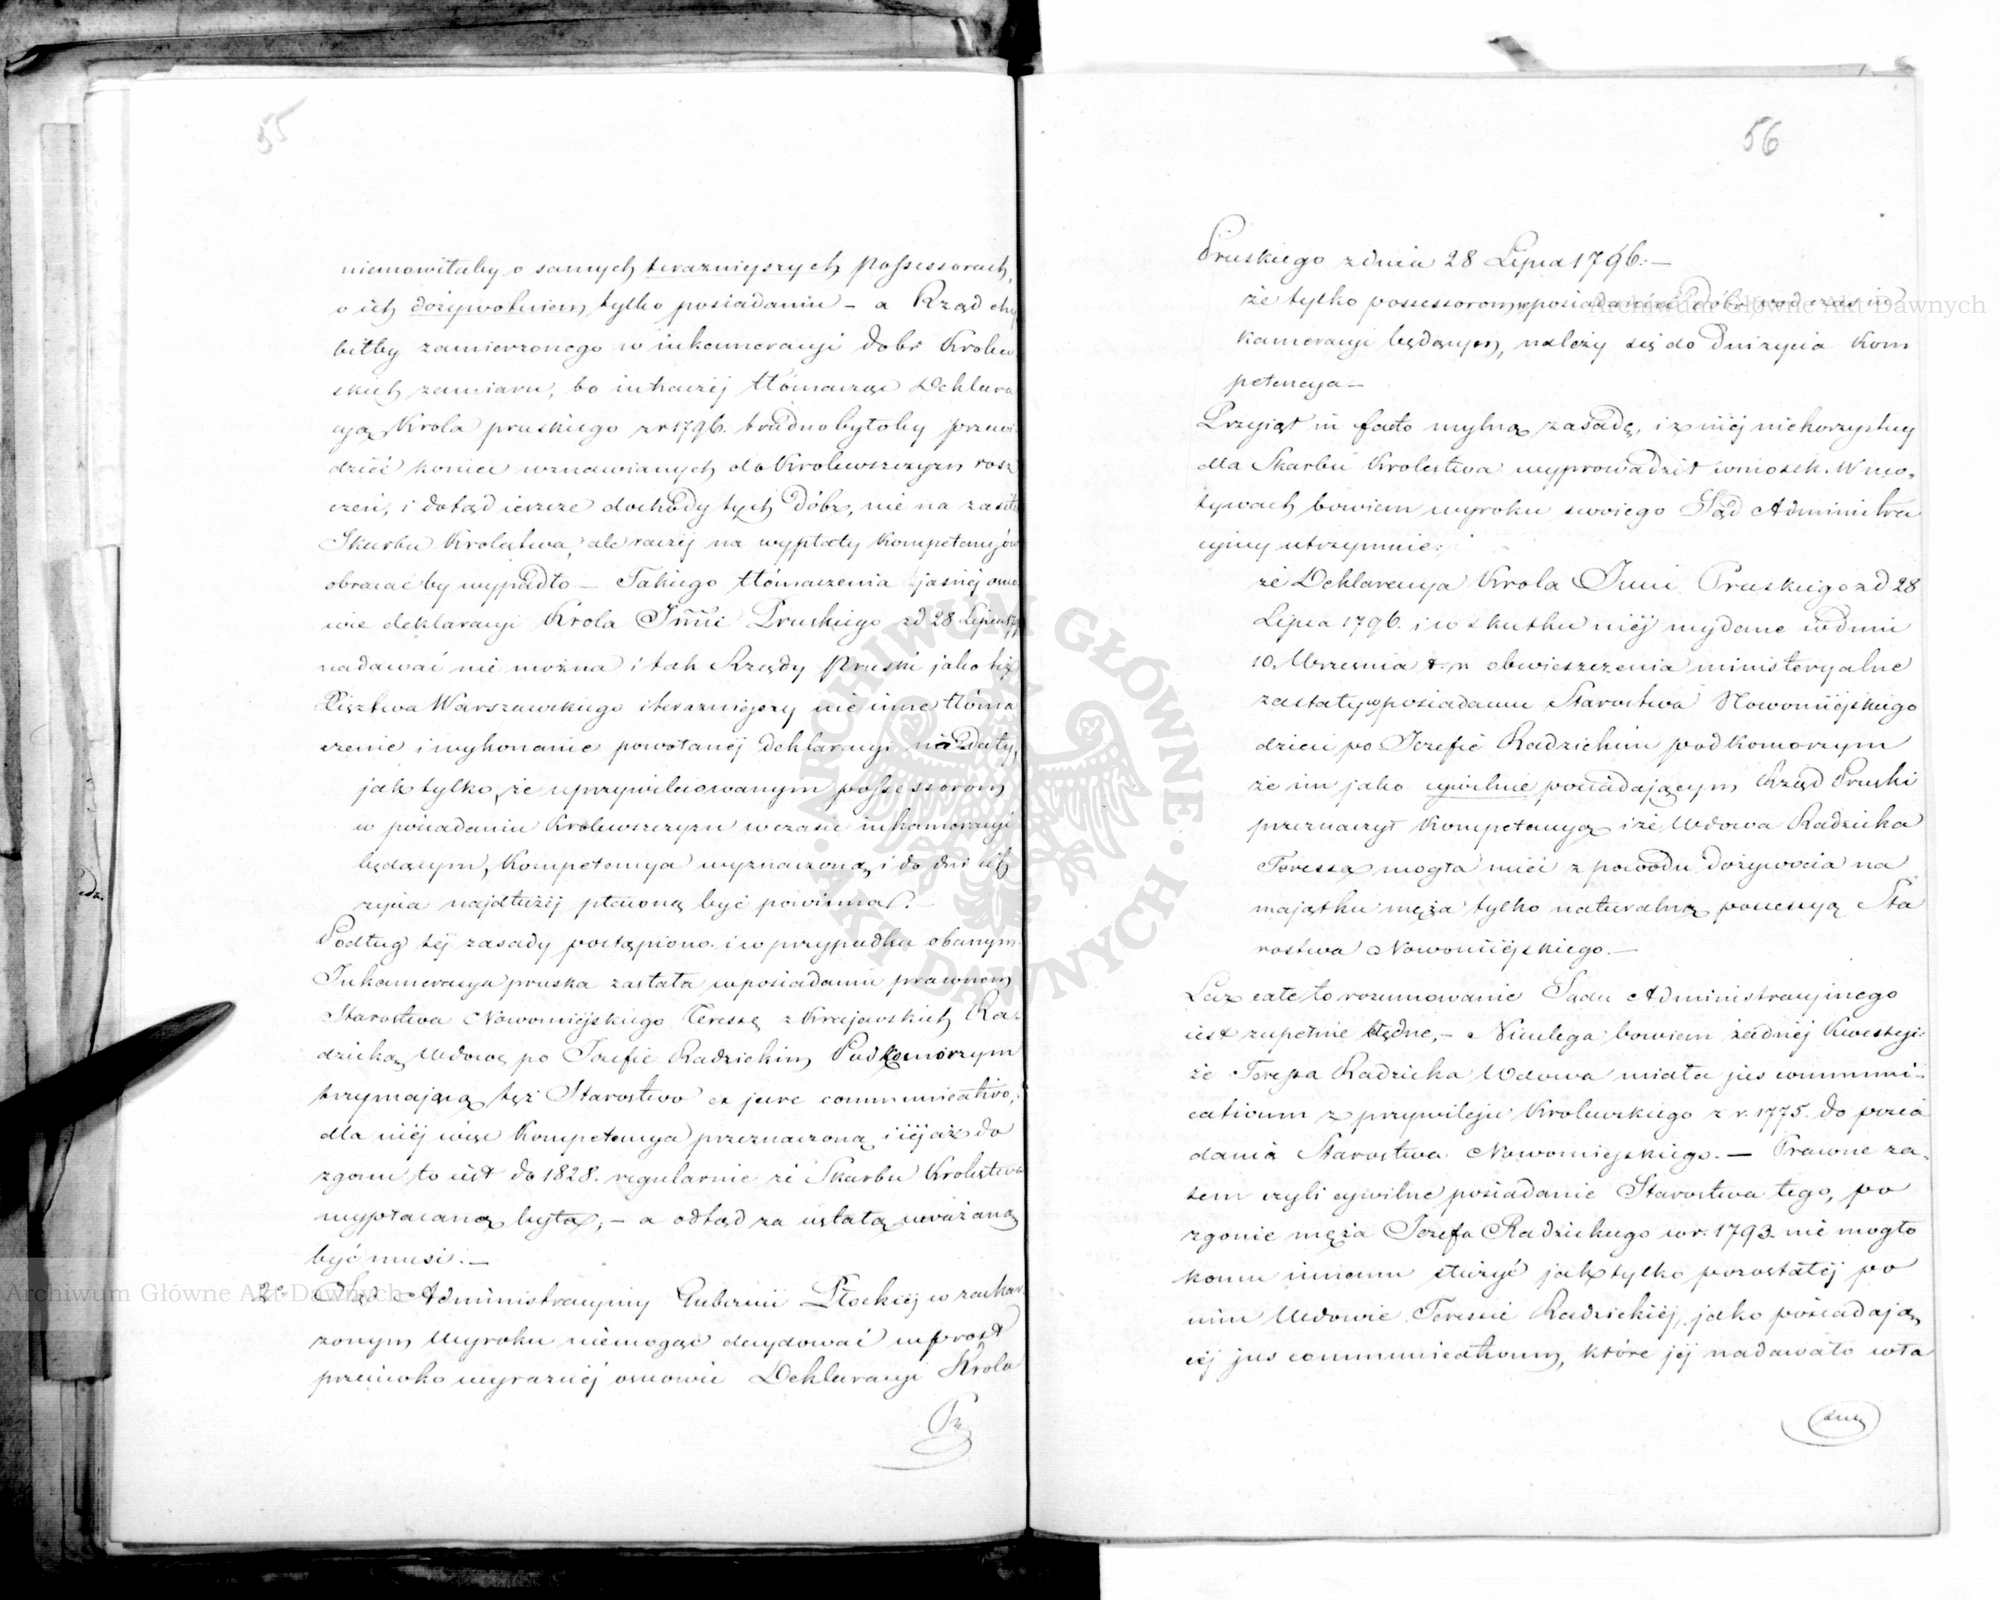 55
niemowiłaby o samych teraznieyszych possessorach,
o ich dożywotniem tylko posiadaniu – a Rząd chy
biłby zamierzonego w inkameracyi dobr Krolew
skich zamiaru, bo inaczéj tłómacząc Deklara
cyą Krola pruskiego z r 1796. trudno byłoby przewi
dzieć koniec wznawianych do Krolewszczyzn rosz
czeń, i dotąd jeszcze dochody tych Dóbr, nie na zasiłek
Skarbu Krolestwa, ale raczéj na wypłaty Kompetencyów
obracać by wypadło – Takiego tłómaczenia jasnéj osno
wie deklaracyi Krola Jmci Pruskiego z d 28 Lipca
nadawać nie można i tak Rządy Pruski jako też
Xięztwa Warszawskiego i teraznieyszy nie inne tłóma
czenie i wykonanie powołanéj Deklaracyi nadały,
jak tylko, że uprzywilejowanym possessorom
w posiadaniu Krolewszczyzn w czasie inkameracyi
będącym, Kompetencya wyznaczoną i do dni ich
życia najdłużéj płaconą być powinna.
Podług téj zasady postąpiono i w przypadku obecnym
Inkameracya pruska zastała w posiadaniu prawnem
Starostwa Nowomiéjskiego Teressę z Krajewskich Ra-
dzicką Wdowę po Jozefie Radzickim Podkomorzym
trzymającą też Starostwo ex jure communicativo;
dla niéj więc Kompetencya przeznaczoną i jéj aż do
zgonu to jest do 1828. regularnie ze Skarbu Krolestwa
wypłacaną była; – a odtąd za ustałą uważaną
być musi. –
2° Sąd Administracyiny Gubernii Płockiéj w zaskar
żonym Wyroku niemogąc decydować wprost
przeciwko wyraznéj osnowie Deklaracyi Krola
Pr
56
Pruskiego z dnia 28 Lipca 1796. –
że tylko possessorom w posiadaniu dóbr pod czas in
kameracyi będącym, należy się do Dni życia Kom
petencya –
Przyiął in facto mylną zasadę, i z niéj niekorzystny
dla Skarbu Krolestwa wyprowadził wniosek. W mo-
tywach bowiem wyroku swoiego Sąd Administra
cyiny utrzymuie:
że Deklaracya Krola Jmci Pruskiego z d 28
Lipca 1796. i w skutku niéj wydane w dniu
10. Września t. r. obwieszczenia ministeryalne
zastały w posiadaniu Starostwa Nowomiéjskiego
dzieci po Jozefie Radzickim podkomorzym
że im jako cywilnie posiadającym Rząd Pruski
przeznaczył Kompetencyą i że Wdowa Radzicka
Teressa mogła mieć z powodu dożywocia na
majątku męża tylko naturalną possessyą Sta
rostwa Nowomiéjskiego. –
Lecz całe to rozumowanie Sądu Administracyinego
iest zupełnie błędne, – Nieulega bowiem żadnéj kwestyi:
że Teressa Radzicka Wdowa miała jus communi-
cativum z przywileju Krolewskiego z r. 1775. do posia
dania Starostwa Nowomiejskiego. – Prawne za-
tem czyli cywilne posiadanie Starostwa tego, po
zgonie męża Jozefa Radzickiego w r. 1793. nie mogło
komu innemu służyć jak tylko pozostałéj po
nim Wdowie Teressie Radzickiéj, jako posiadają
céj jus communicativum, które jéj nadawało wła
sną
Archiwum Główne Akt Dawnych
Archiwum Główne Akt Dawnych
ARCHIWUM GŁÓWNE AKT DAWNYCH